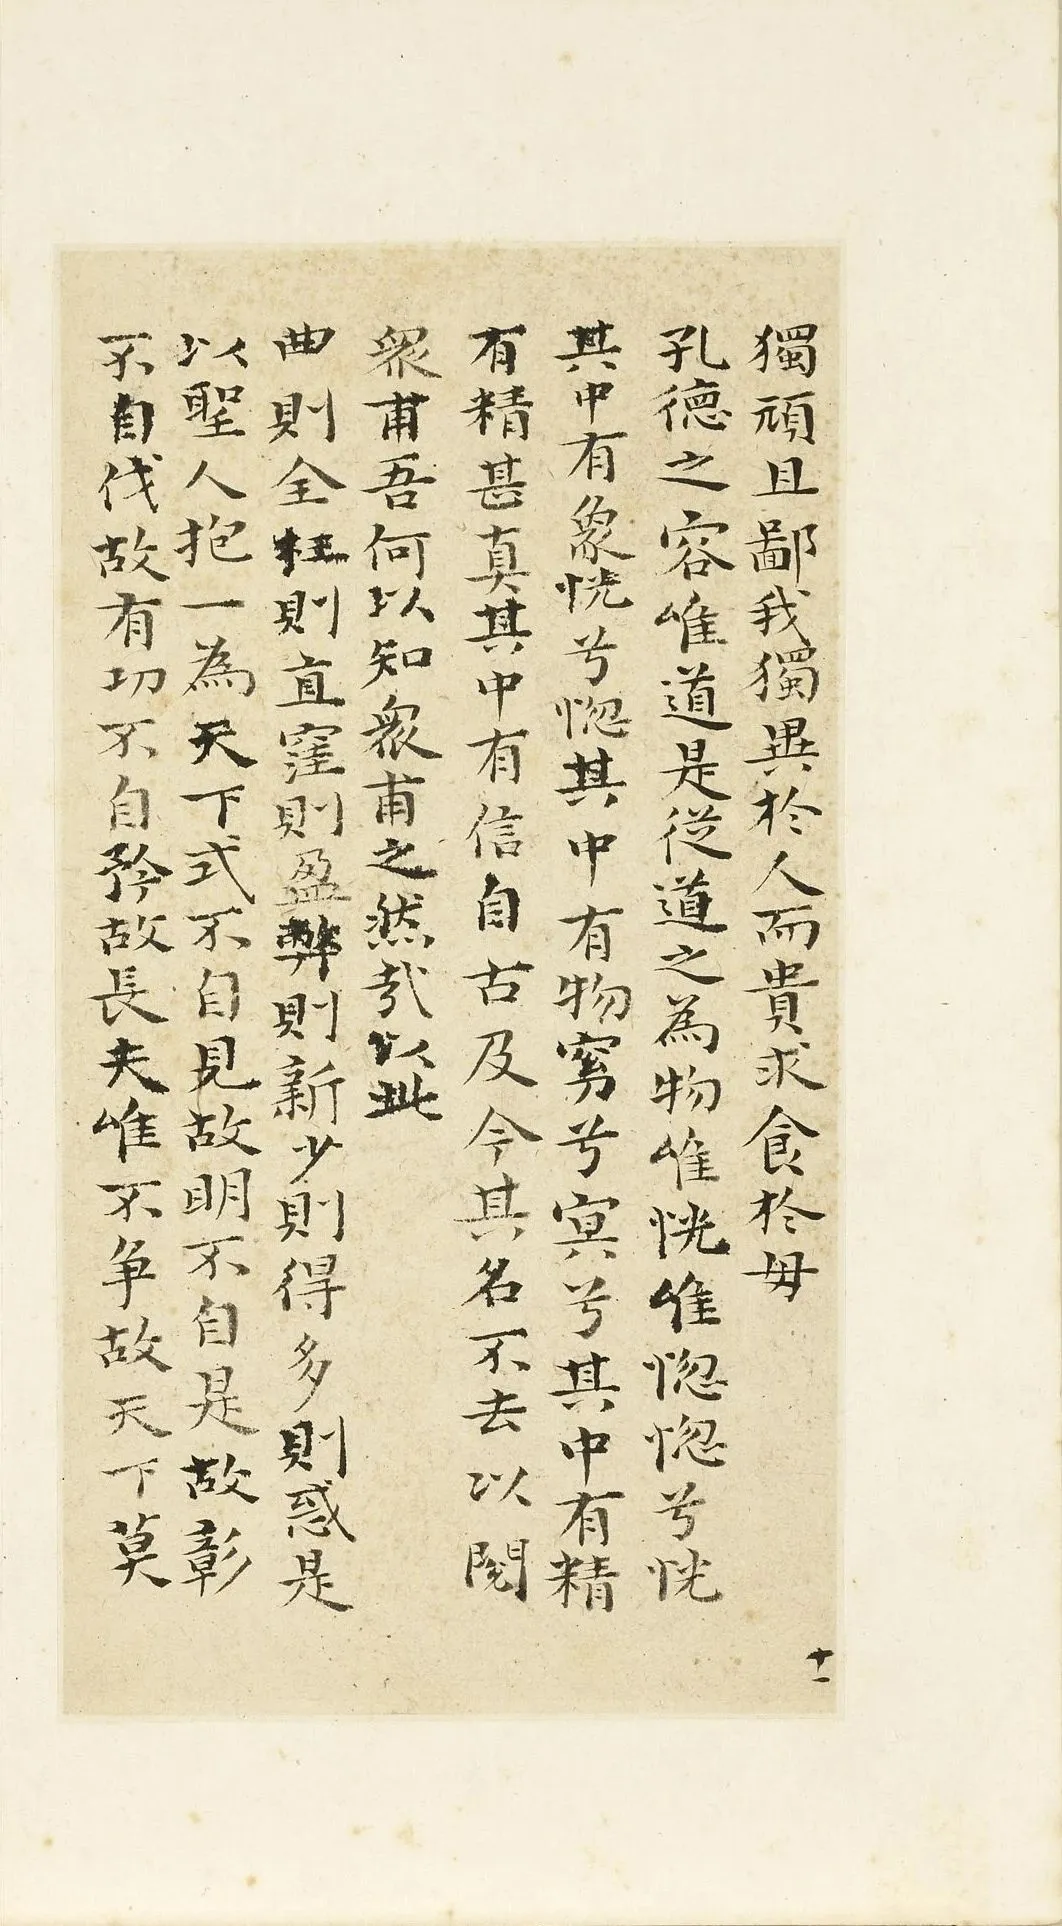 獨頑且鄙我獨異於人而貴求食於母
孔德之容唯道是從道之為物唯恍唯惚惚兮恍
其中有象恍兮惚其中有物窈兮冥兮其中有精
有精甚真其中有信自古及今其名不去以閱
眾甫吾何以知眾甫之然哉以此
曲則全枉則直窪則盈弊則新少則得多則惑是
以聖人抱一為天下式不自見故明不自是故彰
不自伐故有功不自矜故長夫唯不争故天下莫
十一